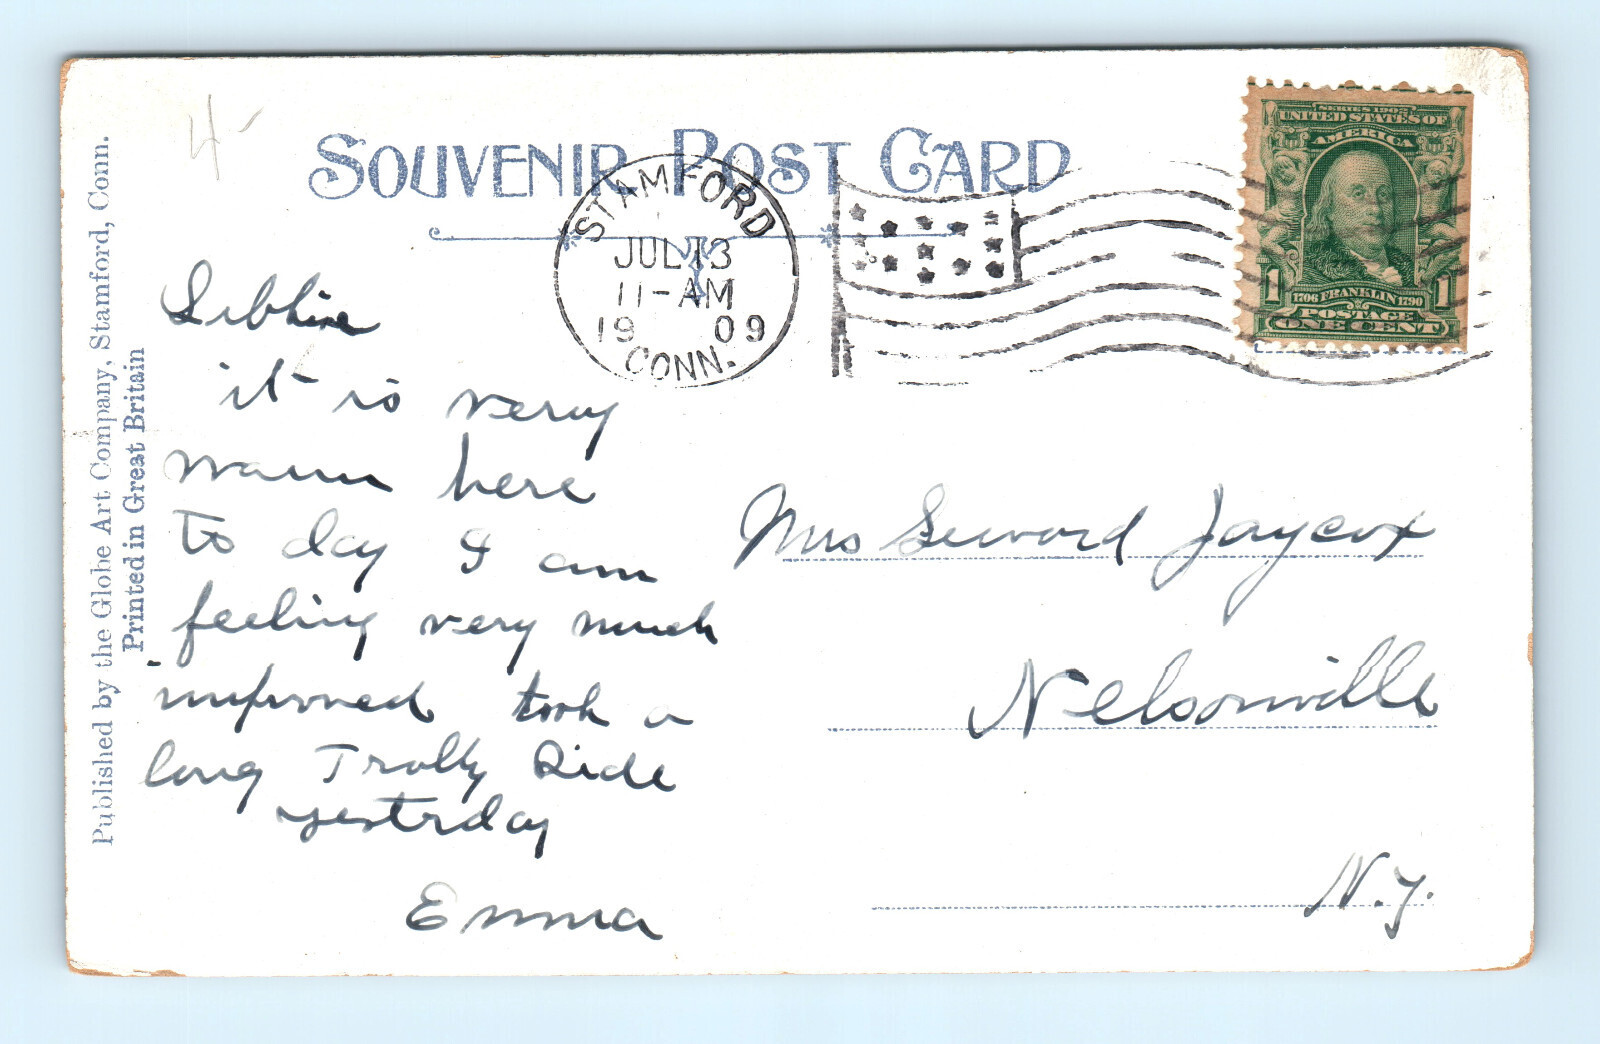 4-
SOUVENIR POST CARD
STAMFORD
JUL 13
11-AM
19 09
CONN.
SERIES 1902
UNITED STATES OF
AMERICA
1 1
1706 FRANKLIN 1790
POSTAGE
ONE CENT
Published by the Globe Art Company, Stamford, Conn.
Printed in Great Britain
it is very
warm here
to day I am
feeling very much
improved took a
long Trolly Ride
yesterday
Emma
Mrs Seward Jaycox
Nelsonville
N.Y.